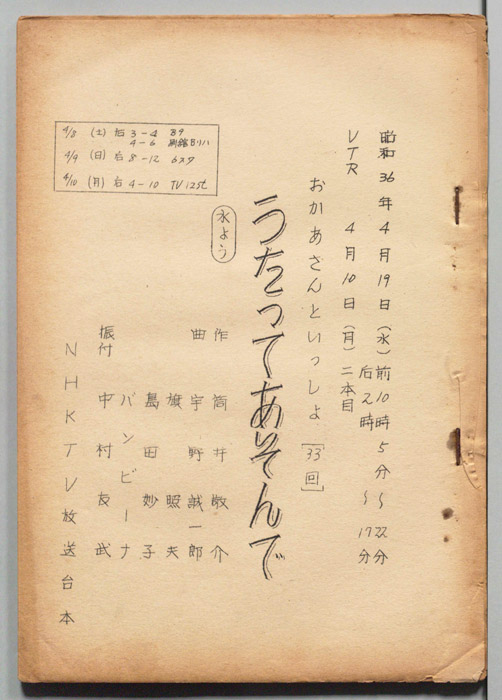 昭和36年4月19日(水)前10時5分~22分
后2時~17分
VTR 4月10日(月)二本目
おかあさんといっしょ[33回]
うたってあそんで
水よう
作 筒井敬介
曲 宇野誠一郎
旗照夫
島田妙子
バンビーナ
振付 中村友武
NHKTV放送台本
4/8 (土) 后 3-4 B9
4-6 別館Bリハ
4/9 (日) 后 8-12 6スタ
4/10 (月) 后 4-10 TV125t